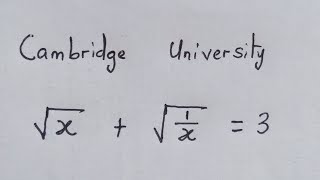 Cambridge University
√x + √(1/x) = 3